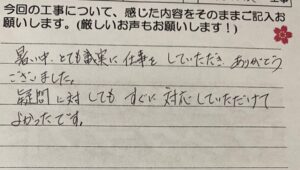 今回の工事について、感じた内容をそのままご記入お
願いします。(厳しいお声もお願いします!)
暑い中、とても誠実に仕事をしていただきありがとう
ございました。
疑問に対しても すぐに対応していただけて
よかったです。